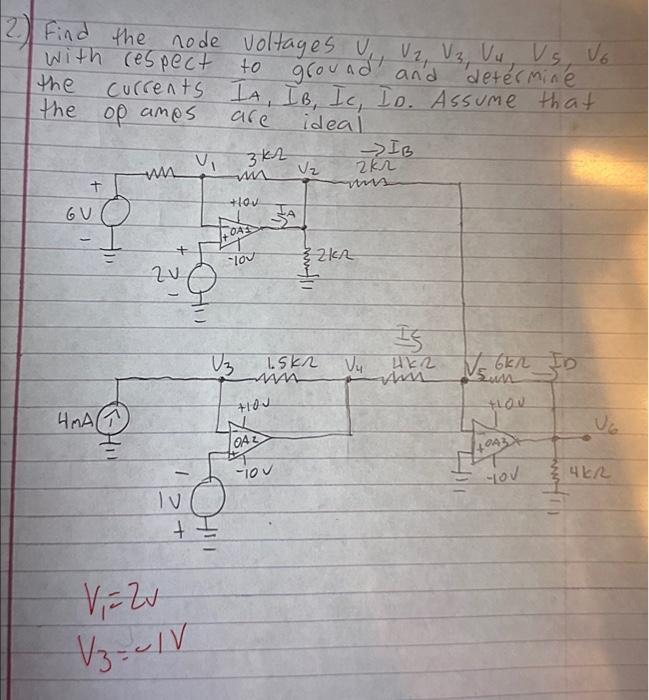 2.) Find the node voltages V1, V2, V3, V4, V5, V6
with respect to ground and determine
the currents IA, IB, IC, ID. Assume that
the op amps are ideal
→IB
V1 3kΩ V2 2kΩ
+
6V
-
+10V
IA
+OA1
-10V
2kΩ
+
2V
-
IC
V3 1.5kΩ V4 4kΩ V5 6kΩ ID
4mA
+10V
OA2
+
-10V
+10V
V6
+OA3
-10V
4kΩ
-
1V
+
V1=2V
V3=-1V